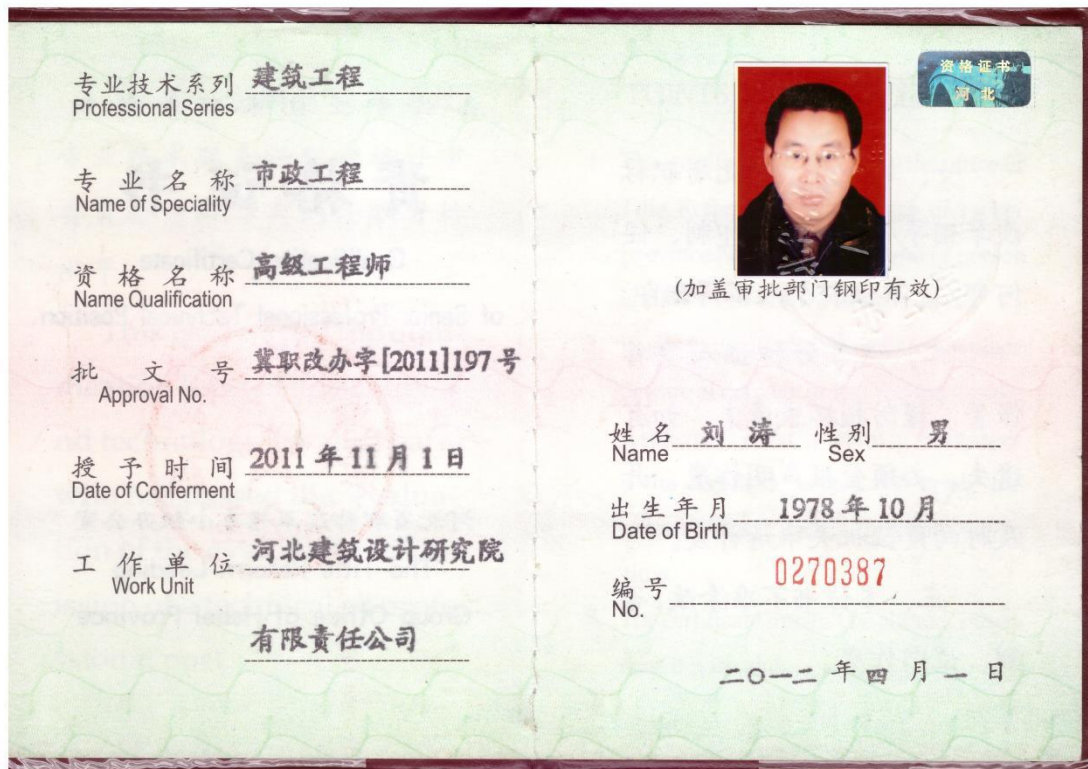 专业技术系列 建筑工程
Professional Series
专业名称 市政工程
Name of Speciality
资格名称 高级工程师
Name Qualification
批文号 冀职改办字[2011]197号
Approval No.
授予时间 2011年11月1日
Date of Conferment
工作单位 河北建筑设计研究院
Work Unit
有限责任公司
资格证书
河北
(加盖审批部门钢印有效)
姓名 刘涛 性别 男
Name Sex
出生年月 1978年10月
Date of Birth
编号 0270387
No.
二〇一二年四月一日